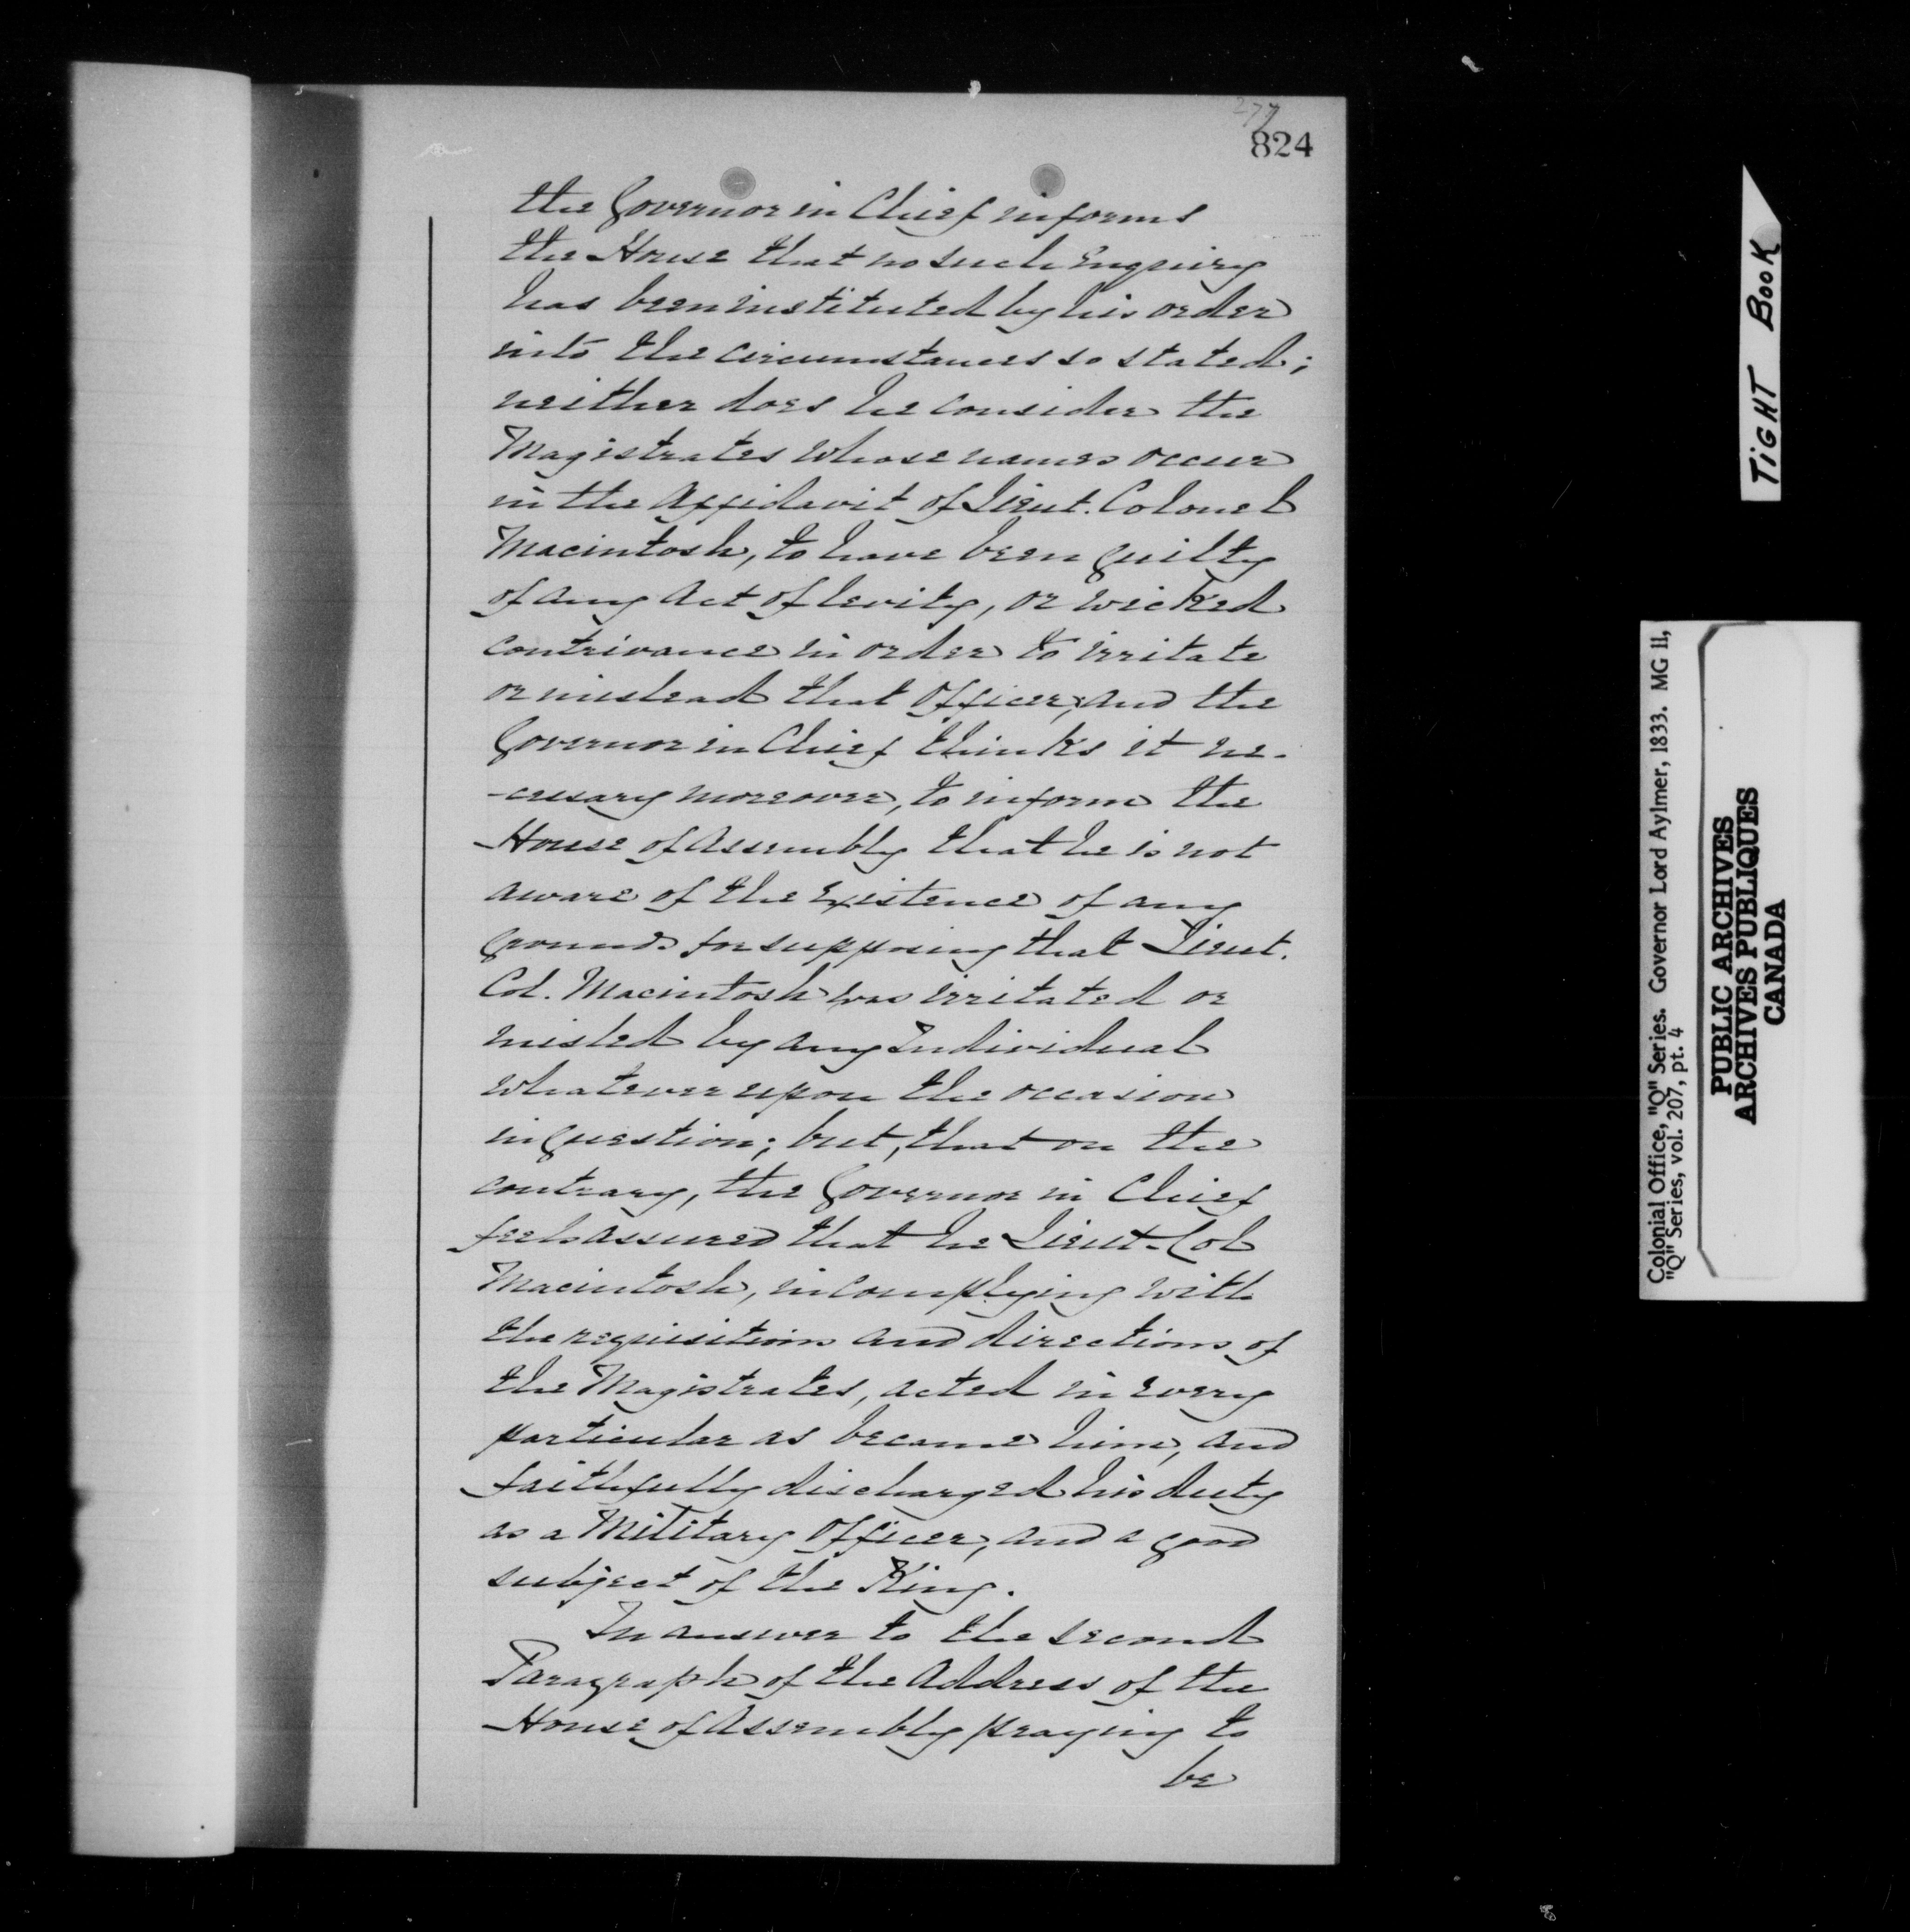 277
824
the Governor in Chief informs
the House that no such Enquiry
has been instituted by his order
into the circumstances so stated;
neither does he consider the
Magistrates whose names occur
in the Affidavit of Lieut. Colonel
Macintosh, to have been guilty
of any act of levity, or wicked
contrivance in order to irritate
or mislead that Officer; and the
Governor in Chief thinks it ne-
-cessary moreover, to inform the
House of Assembly that he is not
aware of the Existence of any
grounds for supposing that Lieut.
Col. Macintosh was irritated or
misled by any Individual
whatever upon the occasion
in question; but, that on the
contrary, the Governor in Chief
feels assured that he Lieut. Col
Macintosh, in complying with
the requisitions and directions of
the Magistrates, acted in Every
particular as became him, and
faithfully discharged his duty
as a Military Officer, and a good
subject of the King.
In answer to the second
Paragraph of the Address of the
House of Assembly praying to
be
TIGHT BOOK
Colonial Office, "Q" Series. Governor Lord Aylmer, 1833. MG 11,
"Q" Series, vol. 207, pt. 4
PUBLIC ARCHIVES
ARCHIVES PUBLIQUES
CANADA